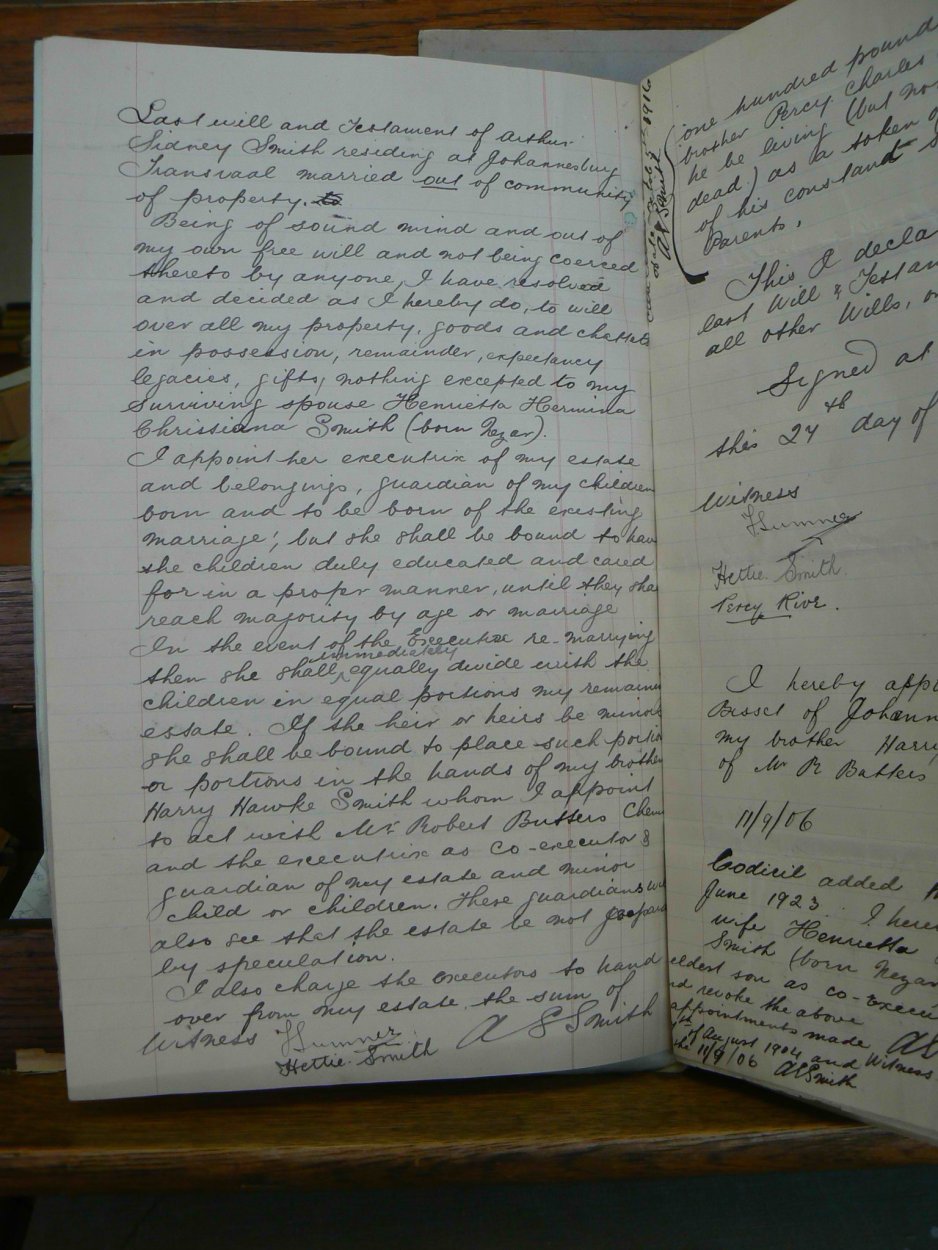 Last will and Testament of Arthur
Sidney Smith residing at Johannesburg
Transvaal married out of community
of property. to
Being of sound mind and out of
my own free will and not being coerced
thereto by anyone, I have resolved
and decided as I hereby do, to will
over all my property, goods and chattels
in possession, remainder, expectancy
legacies, gifts, nothing excepted to my
Surviving spouse Henrietta Hermina
Christiana Smith (born Nezar).
I appoint her executrix of my estate
and belongings, guardian of my children
born and to be born of the existing
marriage; but she shall be bound to have
the children duly educated and cared
for in a proper manner, until they sha
reach majority by age or marriage
In the event of the Executrix re-marrying
immediately
then she shall equally divide with the
children in equal portions my remainin
estate. If the heir or heirs be minors
she shall be bound to place such portio
or portions in the hands of my brother
Harry Hawke Smith whom I appoint
to act with Mr Robert Butters Chem
and the executrix as co-executor &
guardian of my estate and minor
child or children. These guardians wi
also see that the estate be not jeopard
by speculation.
I also charge the executors to hand
over from my estate the sum of
Witness F Sumner A S Smith
Hettie Smith
0916
A S Smith
one hundred pound
brother Percy Charles
he be living (but no
dead) as a token o
of his constant S
Parents.
This I decla
last Will & Testam
all other Wills, or
Signed at
this 24th day of
Witness
F Sumner
Hettie Smith.
Percy Rive.
I hereby app
Bisset of Johann
my brother Harry
of Mr R Butters
11/9/06
Codicil added
June 1923 I here
wife Henrietta
Smith (born Nezar
eldest son as co-execu
nd revoke the above
appointments made AS
of August 1904 and Witness
the 11/9/06 ASSmith